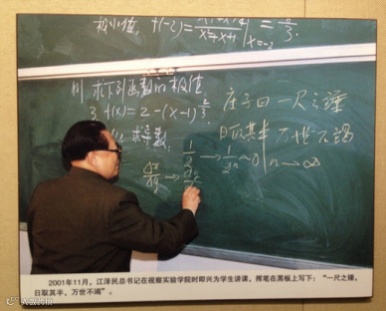 极小值, f(-2) = | = 3.
x²+x+1 | x=-2
1) 求下列函数的极值
3. f(x) = 2-(x-1)^(2/3)
求导数:
庄子曰 一尺之锤
日取其半 万世不竭
1/2 → 1/2ⁿ → 0 n → ∞
2001年11月，江泽民总书记在视察实验学院时即兴为学生讲课，挥笔在黑板上写下：“一尺之锤，
日取其半，万世不竭”。